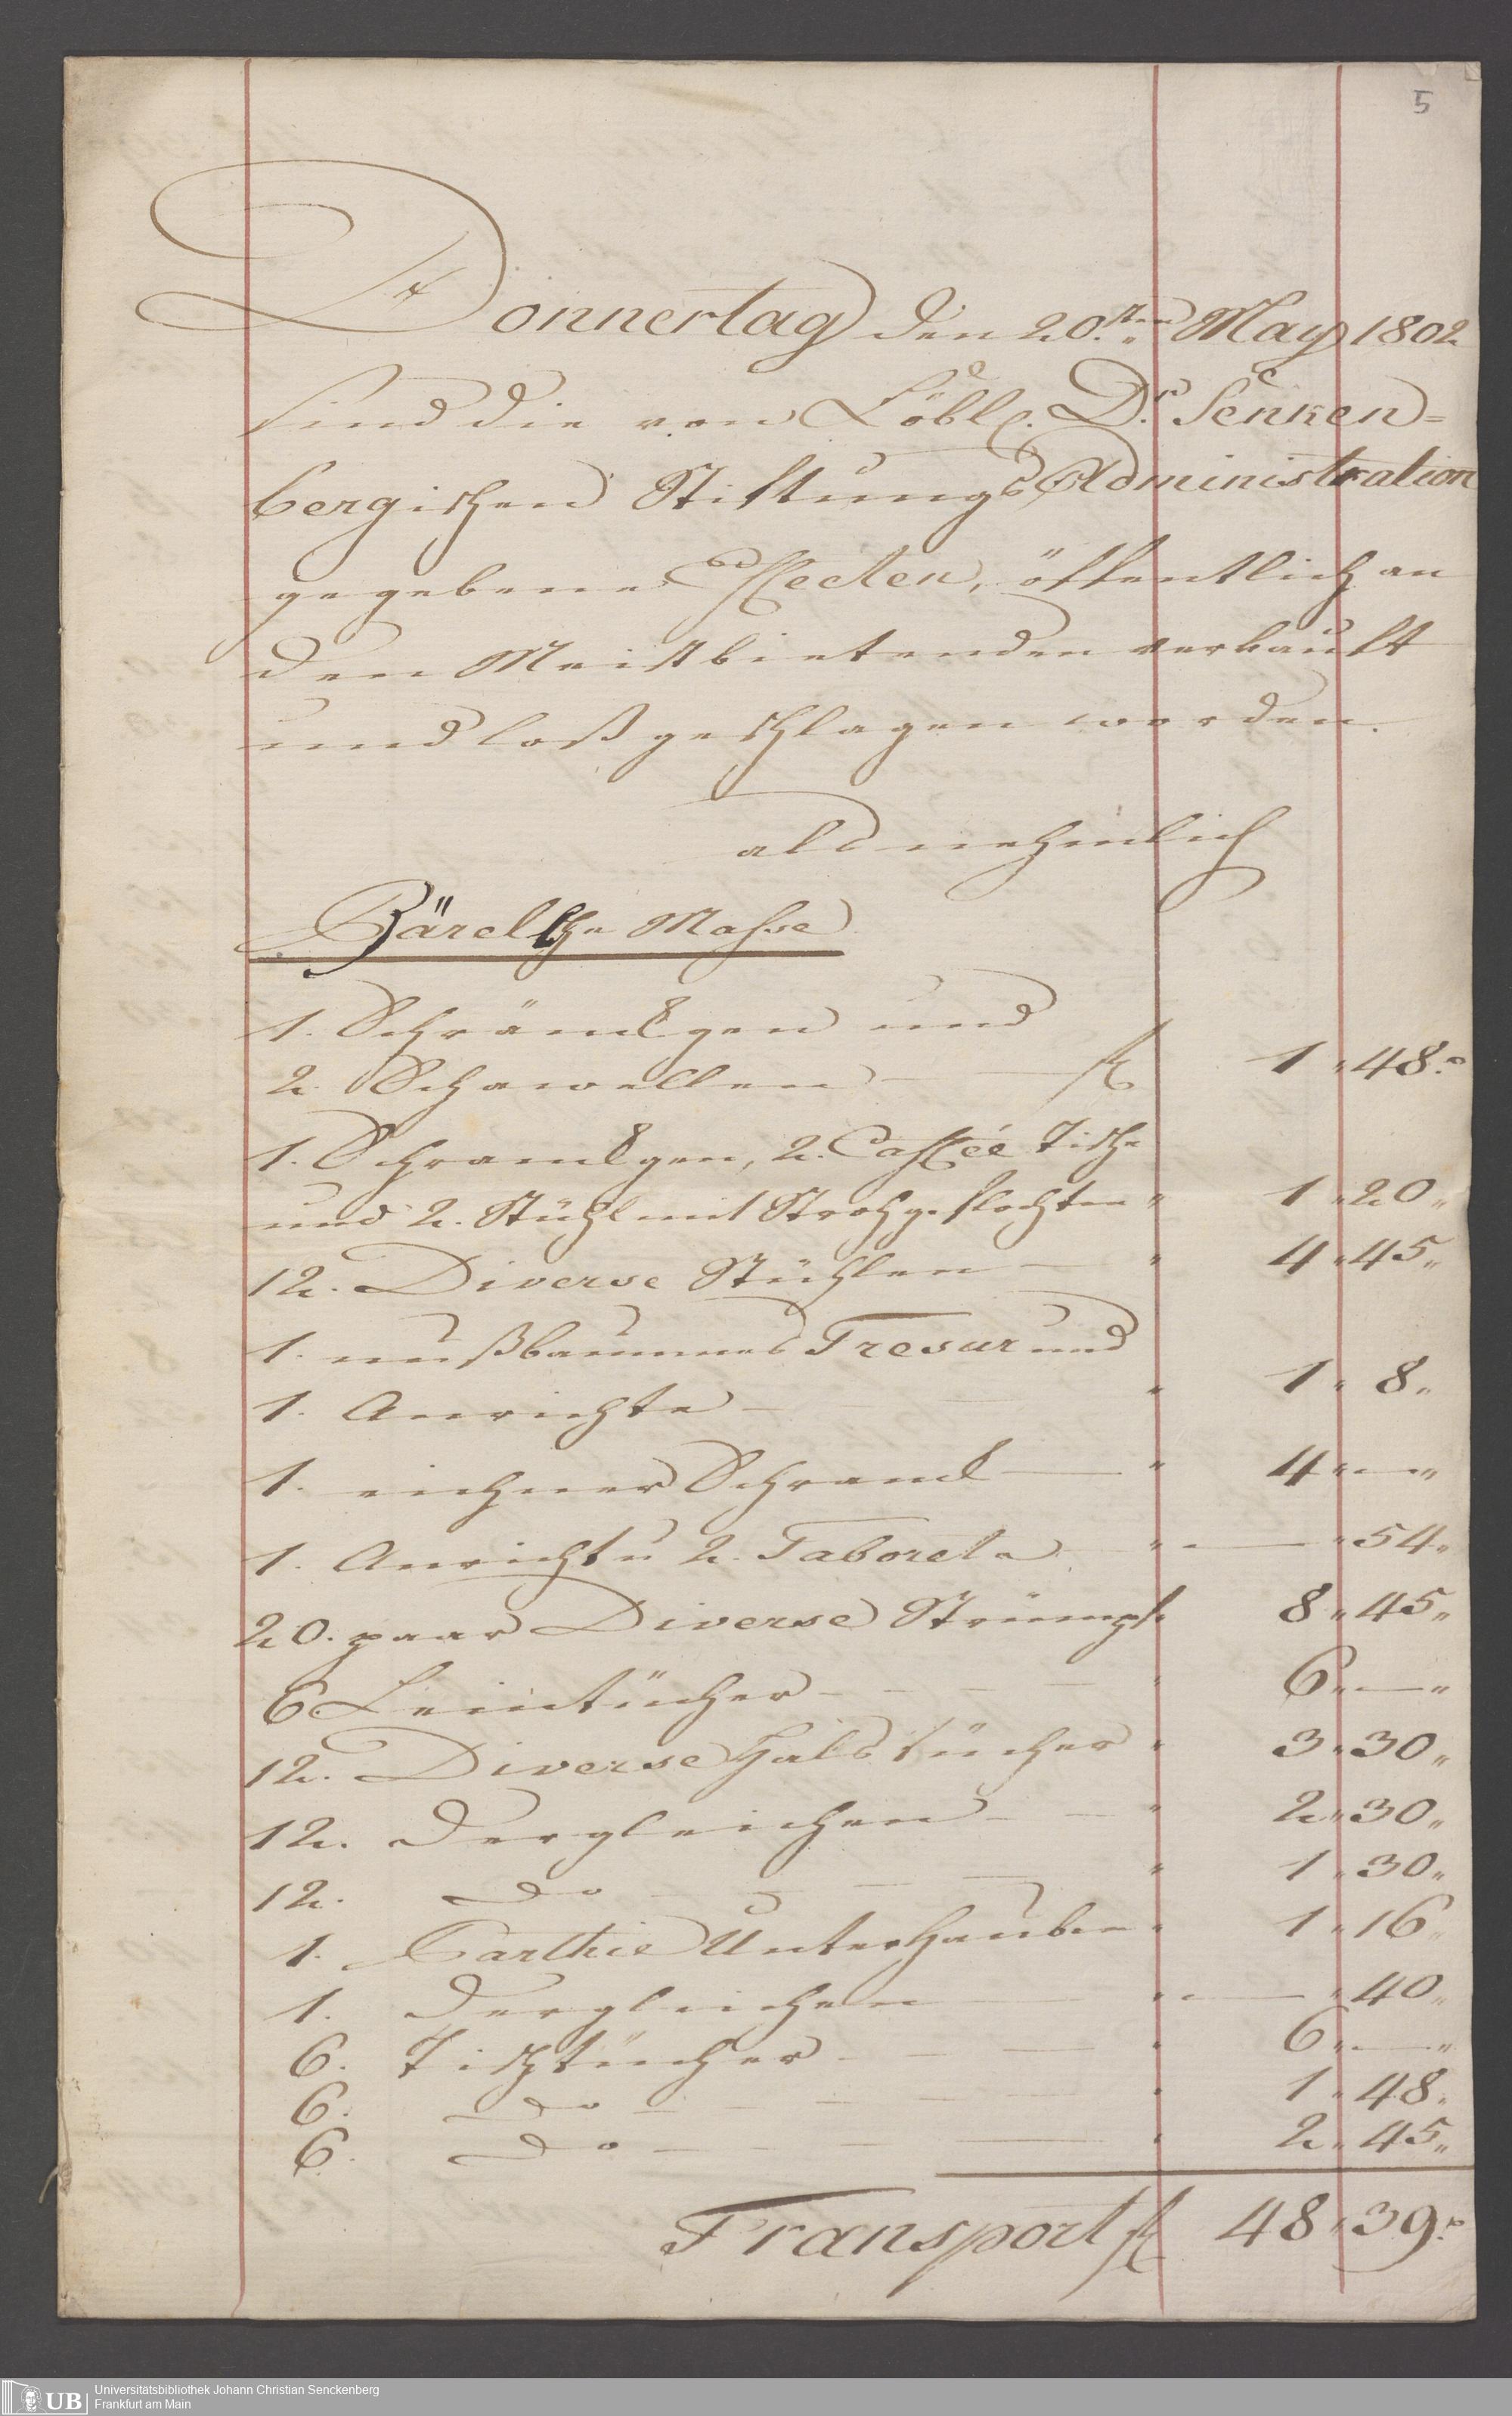 5
Donnertag den 20.ten May 1802
sind die von Löbl. Dr. Senken=
bergischen Stiftungs Administration
gegebene Effecten, öffentlich an
den Meistbietenden verkauft
und loßgeschlagen worden.
als nehmlich
Bärelsche Masse
1. Schränckgen und
2. Schawellen — f 1 " 48.
1. Schranckgen, 2. Caffée Tische
und 2. Stühl mit Strohgeflochten " 1 " 20 "
12. Diverse Stühlen — " 4 " 45 "
1. nußbaumnes Tresur und
1. Anrichte — " 1 " 8 "
1. eichner Schranck — " 4 " — "
1. Anricht u 2. Taborets " — " 54 "
20. paar Diverse Strümpf " 8 " 45 "
6 Leintücher — " 6 " — "
12. Diverse Halstücher " 3 " 30 "
12. Dergleichen — " 2 " 30 "
12. Do — " 1 " 30 "
1. Parthie Unterhauben " 1 " 16 "
1. Dergleichen — " — " 40 "
6. Tischtücher — " 6 " — "
6. Do — " 1 " 48 "
6. Do — " 2 " 45 "
Transport f 48 " 39.
UB
Universitätsbibliothek Johann Christian Senckenberg
Frankfurt am Main